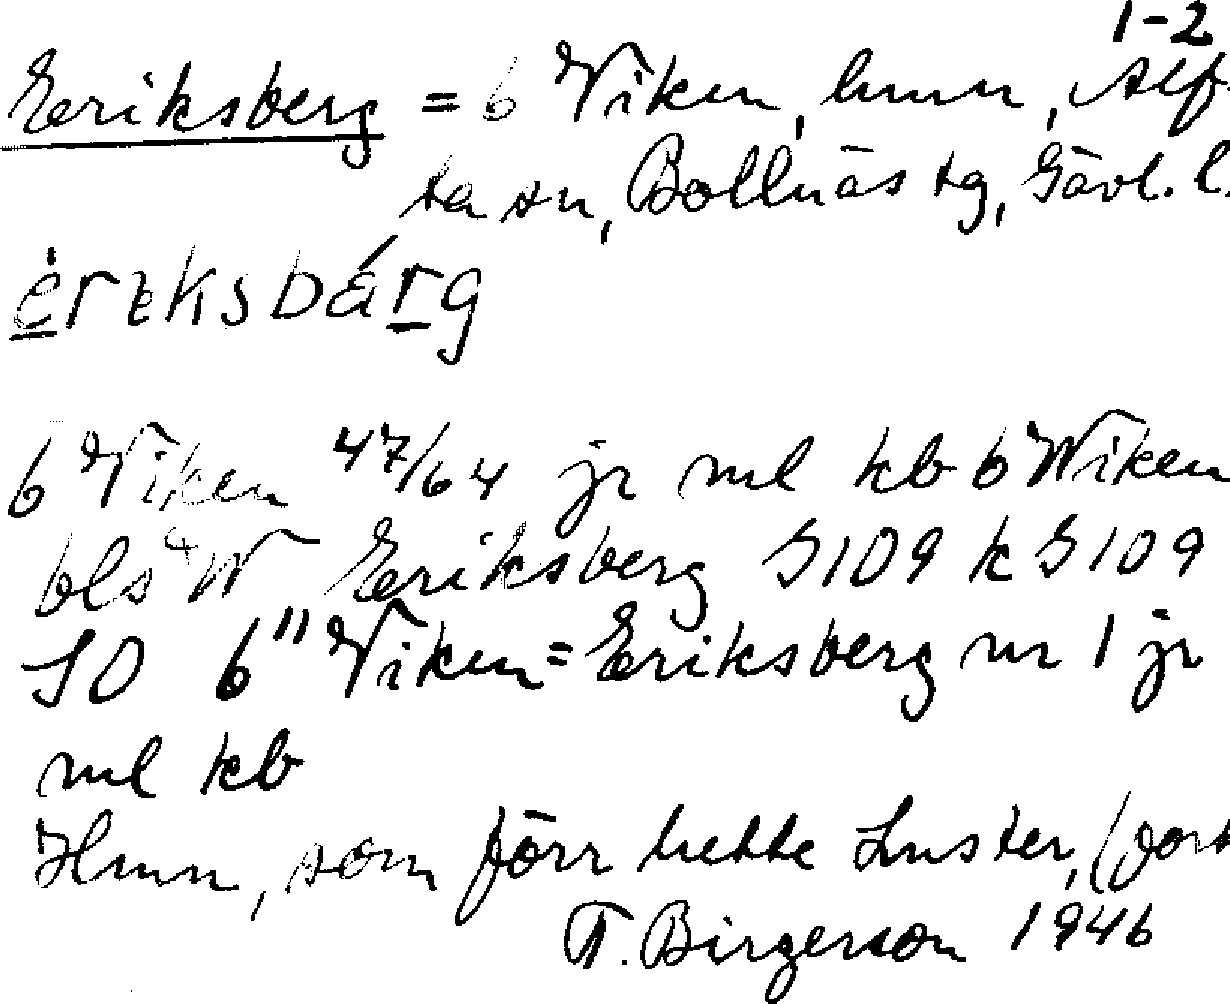 1-2
Eriksberg = 6 Viken, hmn, Alf-
ta sn, Bollnäs tg, Gävl. l.
ėrıksbárg
6 Viken 47/64 jr ml kb 6 Wiken
bls W Eriksberg S109 k S109
JO 6" Viken = Eriksberg nr 1 jr
ml kb
Hmn, som förr hette Luster, (fort
T. Birgerson 1946